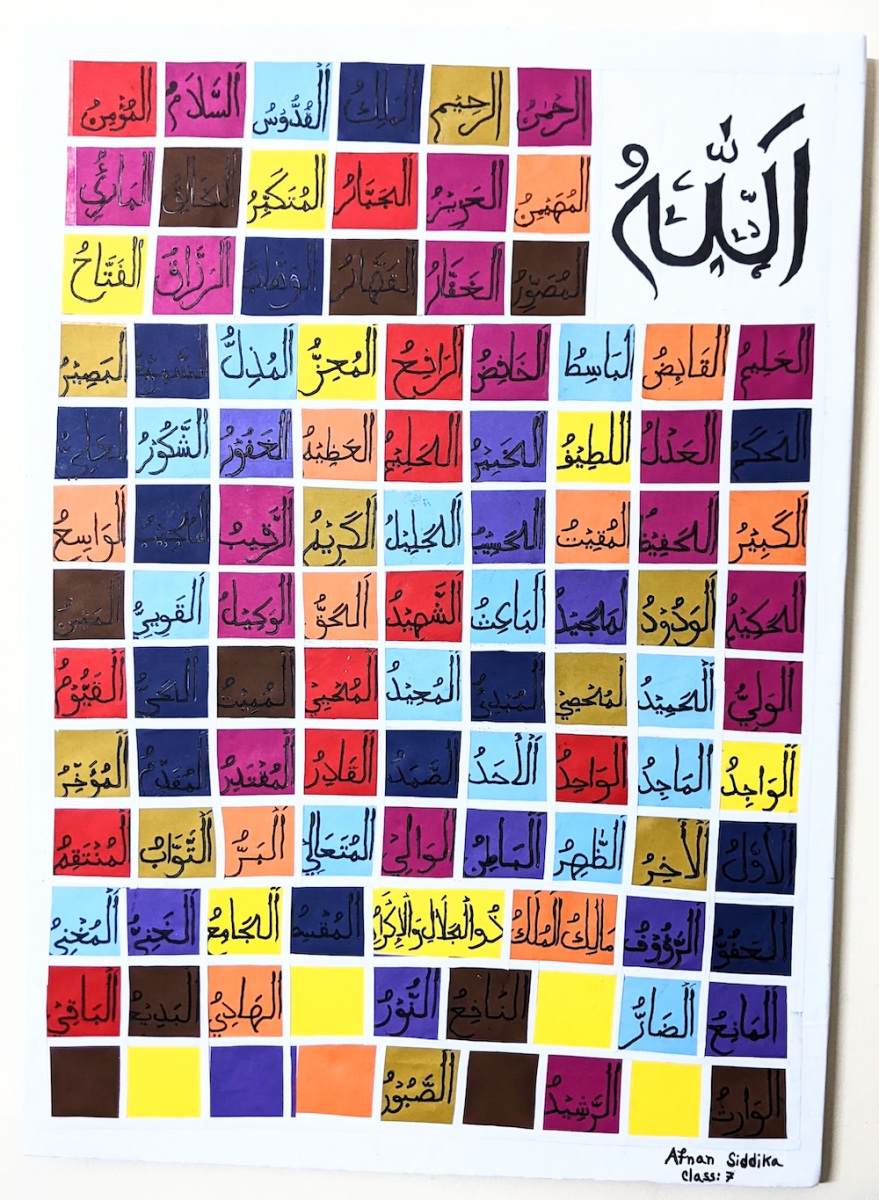 اَللّٰهُ
الرحمٰنُ الرحِيْم المَلِكُ اَلْقُدُّوْسُ اَلسَّلاَمُ المُؤْمِنُ
المُهَيْمِنُ العَزِيْزُ الجَبَّارُ المُتَكَبِّرُ الخَالِقُ البَارِئُ
المُصَوِّرُ الغَفَّارُ القَهَّارُ الوَهَّابُ الرَزَّاقُ الفَتَّاحُ
العَلِيْمُ القَابِضُ البَاسِطُ الخَافِضُ اَلرَافِعُ المُعِزُّ اَلمُذِلُّ البَصِيْرُ
الحَكَمُ العَدْلُ اللطِيْفُ الخَبِيْرُ الحَلِيْمُ الغَفُوْرُ الشَّكُوْرُ
الكَبِيْرُ الحَفِيْظُ المُقِيْتُ الحَسِيْبُ الجَلِيْلُ الكَرِيْمُ الرَّقِيْبُ الوَاسِعُ
الحَكِيْمُ الوَدُوْدُ المَجِيْدُ البَاعِثُ الشَّهِيْدُ الحَقُّ الوَكِيْلُ القَوِيُّ
الوَلِيُّ الحَمِيْدُ المُحْصِيْ المُبْدِئُ المُعِيْدُ المُحْيِيْ المُمِيْتُ القَيُّوْمُ
الوَاجِدُ المَاجِدُ الوَاحِدُ الْأَحَدُ الصَّمَدُ القَادِرُ المُقْتَدِرُ المُقَدِّمُ المُؤَخِّرُ
الأَوَّلُ الْأَخِرُ الوَالِيْ المُتَعَالِيْ البَرُّ التَّوَّابُ المُنْتَقِمُ
الرَّؤُوْفُ مَالِكُ المُلْكُ ذُوالجَلاَلِ وَالْإِكْرَام المُقْسِط الجَامِعُ المُغْنِيْ
المَانِعُ الضَارُّ النَافِعُ النُّوْرُ الهَادِيُ البَدِيْعُ البَاقِيْ
الوَارِثُ الرَّشِيْدُ الصَّبُوْرُ
Afnan Siddika
Class: 7